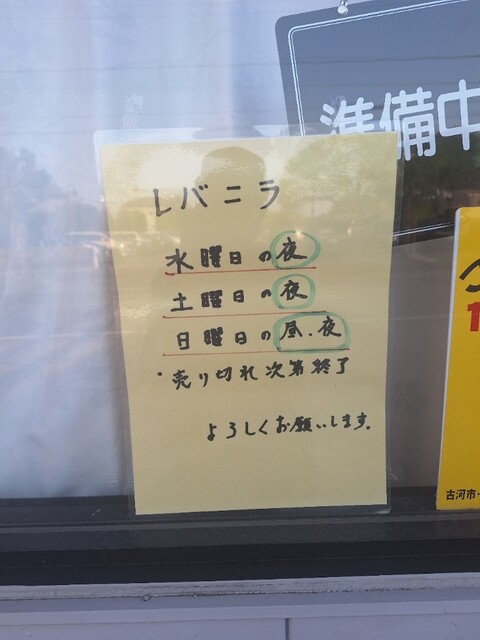 準備中
レバニラ
水曜日の夜
土曜日の夜
日曜日の昼.夜
・売り切れ次第終了
よろしくお願いします。
古河市